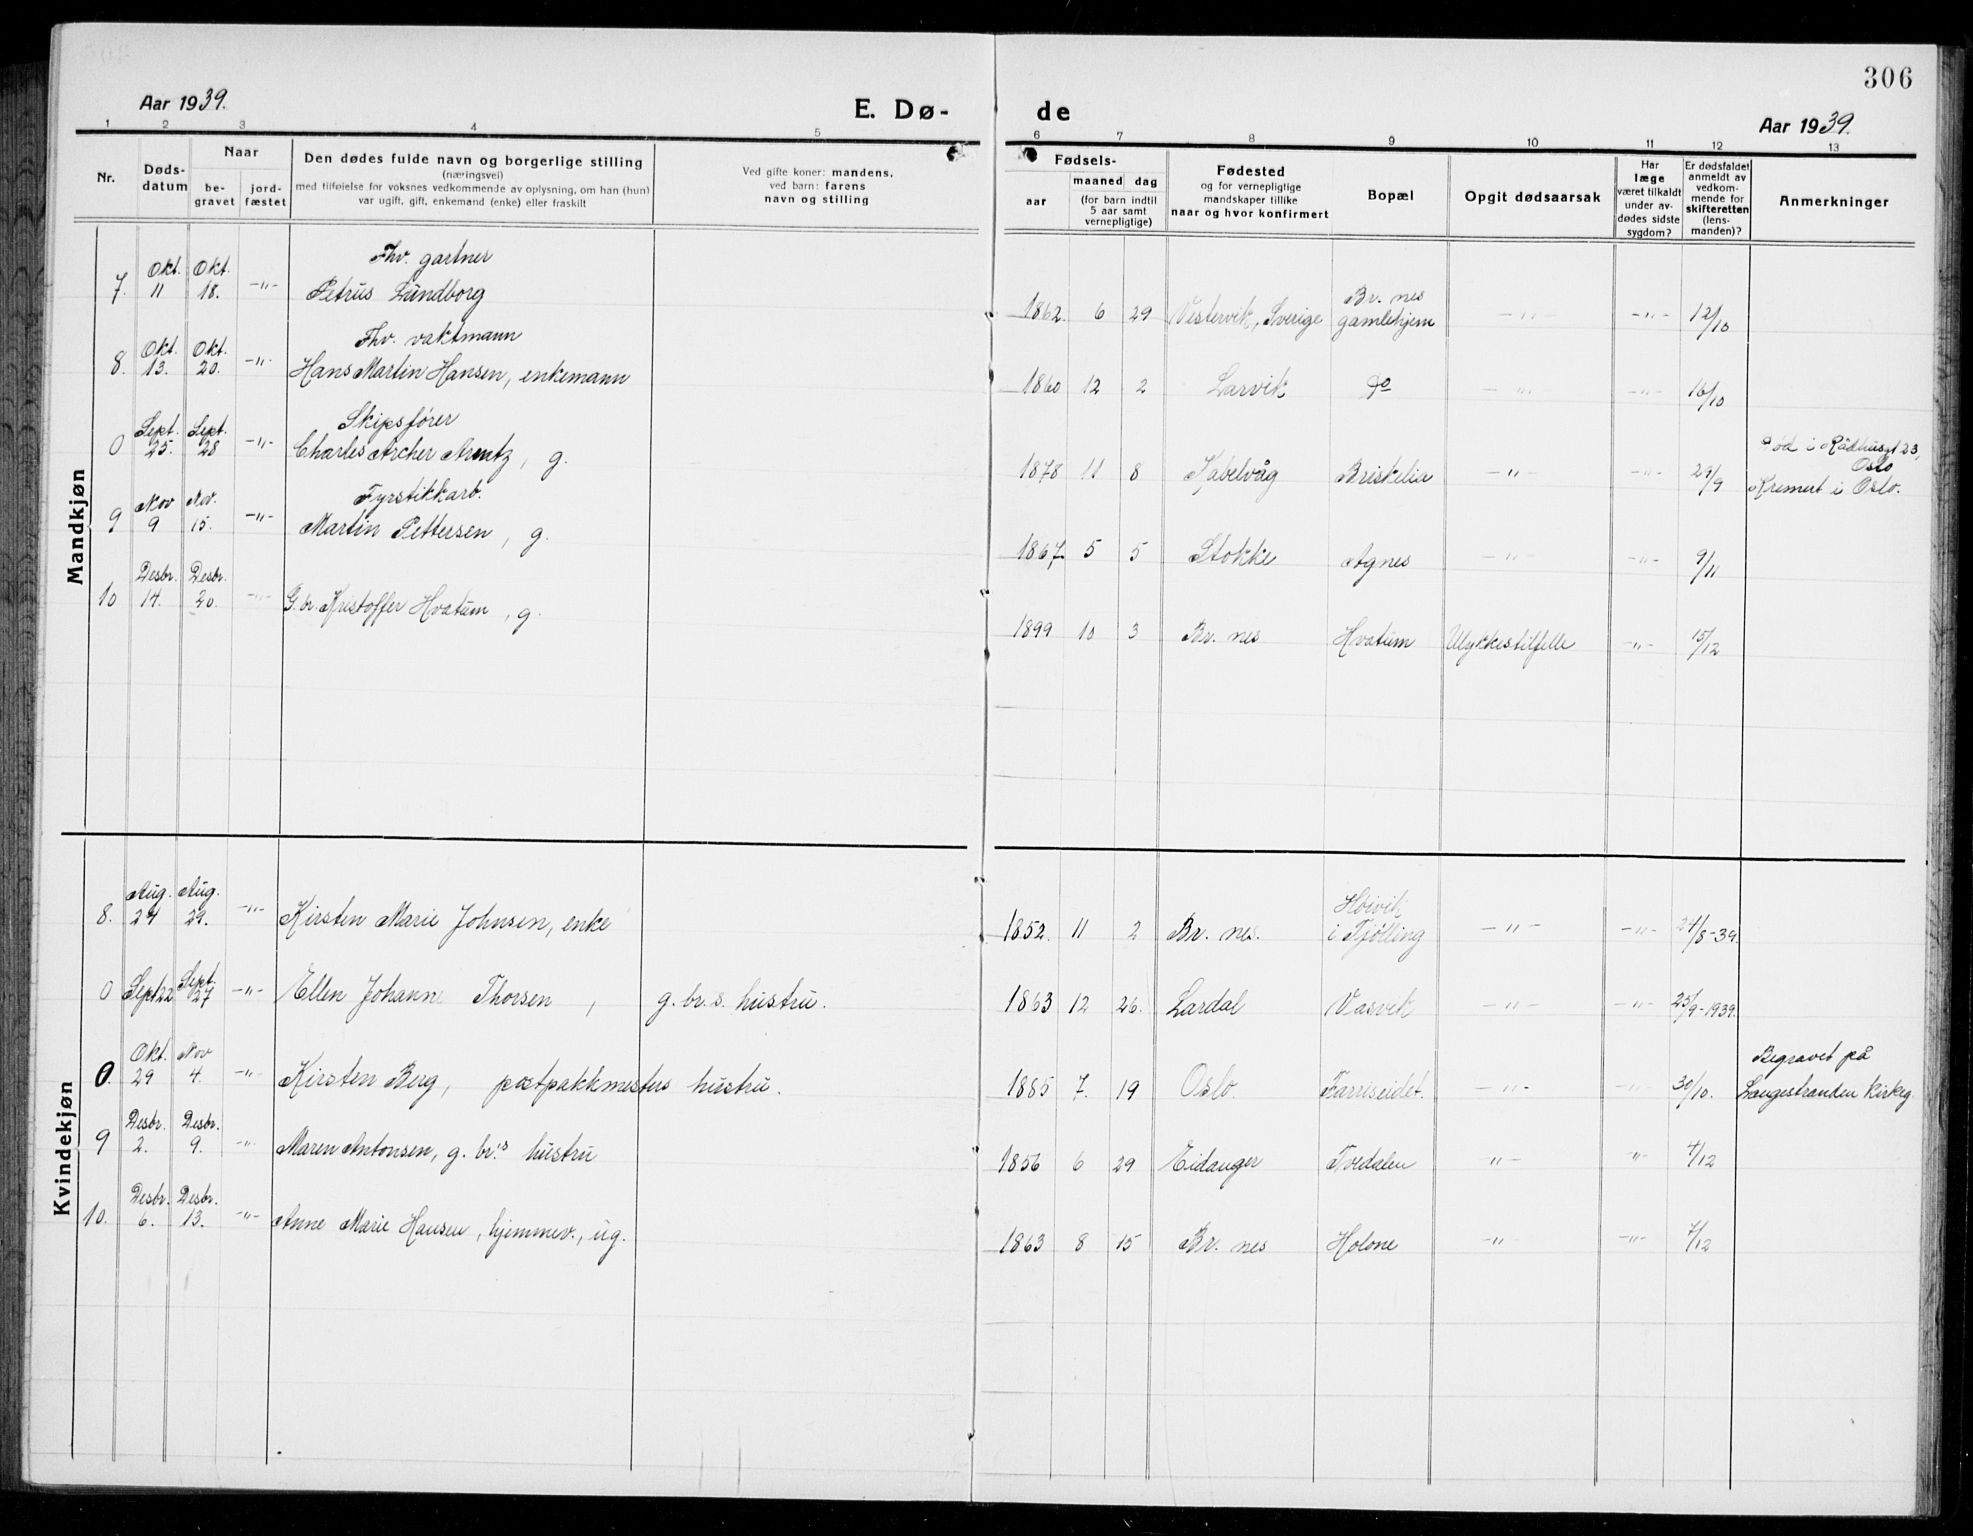 306
Aar 1939.
E. Dø-
de
Aar 1939.
1 2 3 4 5
6 7 8 9 10 11 12 13
Nr.
Døds-
datum
Naar
be-
gravet
jord-
fæstet
Den dødes fulde navn og borgerlige stilling
(næringsvei)
med tilføielse for voksnes vedkommende av oplysning, om han (hun)
var ugift, gift, enkemand (enke) eller fraskilt
Ved gifte koner: mandens,
ved barn: farens
navn og stilling
Fødsels-
aar
maaned dag
(for barn indtil
5 aar samt
vernepligtige)
Fødested
og for vernepligtige
mandskaper tillike
naar og hvor konfirmert
Bopæl
Opgit dødsaarsak
Har
læge
været tilkaldt
under av-
dødes sidste
sygdom?
Er dødsfaldet
anmeldt av
vedkom-
mende for
skifteretten
(lens-
manden)?
Anmerkninger
Mandkjøn
Okt. Okt. Fhv. gartner
7. 11 18. -"- Petrus Lundborg
Br. nes
1862. 6 29 Vestervik, Sverige gamlehjem -"- -"- 12/10
Okt. Okt. Fhv. vaktmann
8. 13. 20. -"- Hans Martin Hansen, enkemann
1860 12 2 Larvik do -"- -"- 16/10
Sept. Sept. Skipsfører
0 25. 28 -"- Charles Archer Arentz, g.
Død i Rådhusgt 23,
Oslo
1878 11 8 Kabelvåg Briskelia -"- -"- 29/9 Kremert i Oslo.
Nov Nov. Fyrstikkarb.
9 9 15. -"- Martin Pettersen, g.
1867. 5 5 Stokke Agnes -"- -"- 9/11
Desbr. Desbr.
10 14. 20. -"- G. br. Kristoffer Hvatum, g.
1899 10 3 Br. nes Hvatum Ulykkestilfelle -"- 15/12
Kvindekjøn
Aug. Aug.
8. 24 29. -"- Kirsten Marie Johnsen, enke
Høivik
1852. 11 2 Br. nes. i Tjølling -"- -"- 24/8-39.
Sept.
0 Sept 22 27 -"- Ellen Johanne Thorsen, g. br.s. hustru.
1863 12 26. Lardal Vasvik -"- -"- 25/9-1939.
Okt. Nov
0. 29 4. -"- Kirsten Berg, postpakkmesters hustru.
Begravet på
1885 7. 19 Oslo. Farriseidet. -"- -"- 30/10. Langestranden kirkeg.
Desbr. Desbr.
9 2. 9. -"- Maren Antonsen, g. br.'s hustru
1856 6 29 Eidanger Tvedalen -"- -"- 4/12
Desbr. Desbr.
10. 6. 13. -"- Anne Marie Hansen, hjemmev., ug.
1863 8 15 Br. nes Holone -"- -"- 7/12